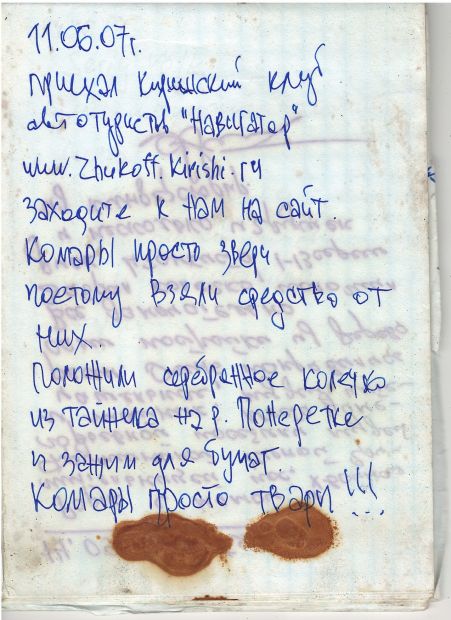 11.06.07г.
приехал Киришский клуб
автотуристов "Навигатор"
www.Zhukoff.Kirishi.ru
заходите к нам на сайт.
Комары просто звери
поетому взяли средство от
них.
Положили серебренное колечко
из тайника на р. Понеретке
и зажим для бумаг.
Комары просто твари!!!